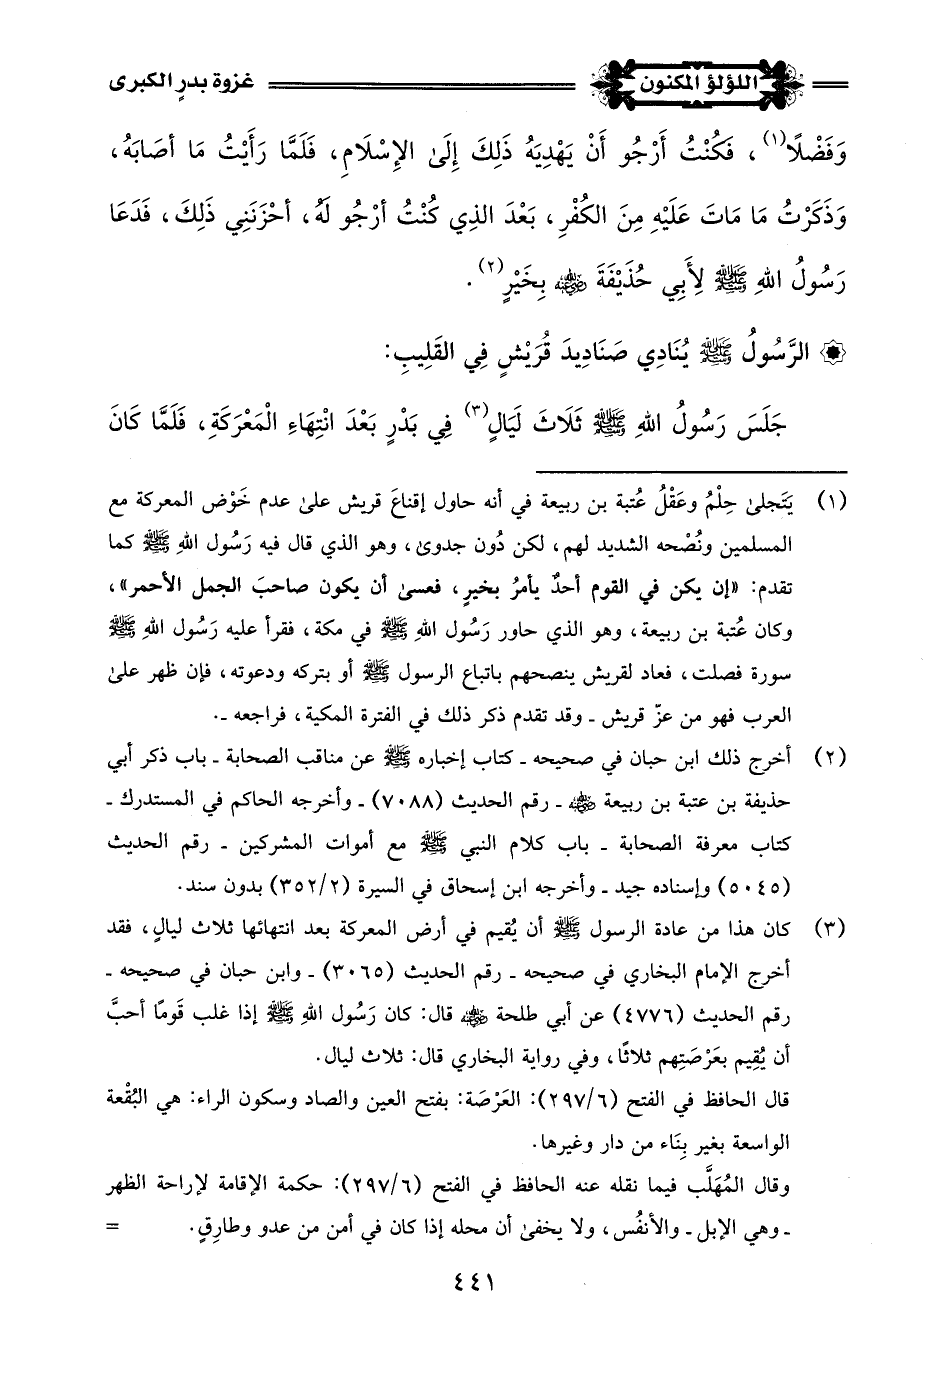 اللؤلؤ المكنون
غزوة بدرٍ الكبرى
وَفَضْلًا(١)، فَكُنْتُ أَرْجُو أَنْ يَهْدِيَهُ ذَلِكَ إِلَى الإِسْلَامِ، فَلَمَّا رَأَيْتُ مَا أَصَابَهُ،
وَذَكَرْتُ مَا مَاتَ عَلَيْهِ مِنَ الكُفْرِ، بَعْدَ الذِي كُنْتُ أَرْجُو لَهُ، أَحْزَنَنِي ذَلِكَ، فَدَعَا
رَسُولُ اللهِ ﷺ لِأَبِي حُذَيْفَةَ رضي الله عنه بِخَيْرٍ(٢).
الرَّسُولُ ﷺ يُنَادِي صَنَادِيدَ قُرَيْشٍ فِي القَلِيبِ:
جَلَسَ رَسُولُ اللهِ ﷺ ثَلَاثَ لَيَالٍ(٣) فِي بَدْرٍ بَعْدَ انْتِهَاءِ الْمَعْرَكَةِ، فَلَمَّا كَانَ
(١) يَتَجلىٰ حِلْمُ وعَقْلُ عُتبة بن ربيعة في أنه حاول إقناعَ قريش علىٰ عدم خَوْض المعركة مع
المسلمين ونُصْحه الشديد لهم، لكن دُون جدوىٰ، وهو الذي قال فيه رَسُول اللهِ ﷺ كما
تقدم: «إن يكن في القوم أحدٌ يأمرُ بخيرٍ، فعسىٰ أن يكون صاحبَ الجمل الأحمر»،
وكان عُتبة بن ربيعة، وهو الذي حاور رَسُول اللهِ ﷺ في مكة، فقرأ عليه رَسُول اللهِ ﷺ
سورة فصلت، فعاد لقريش ينصحهم باتباع الرسول ﷺ أو بتركه ودعوته، فإن ظهر علىٰ
العرب فهو من عزّ قريش ـ وقد تقدم ذكر ذلك في الفترة المكية، فراجعه ـ.
(٢) أخرج ذلك ابن حبان في صحيحه ـ كتاب إخباره ﷺ عن مناقب الصحابة ـ باب ذكر أبي
حذيفة بن عتبة بن ربيعة رضي الله عنه ـ رقم الحديث (٧٠٨٨) ـ وأخرجه الحاكم في المستدرك ـ
كتاب معرفة الصحابة ـ باب كلام النبي ﷺ مع أموات المشركين ـ رقم الحديث
(٥٠٤٥) وإسناده جيد ـ وأخرجه ابن إسحاق في السيرة (٣٥٢/٢) بدون سند.
(٣) كان هذا من عادة الرسول ﷺ أن يُقيم في أرض المعركة بعد انتهائها ثلاث ليالٍ، فقد
أخرج الإمام البخاري في صحيحه ـ رقم الحديث (٣٠٦٥) ـ وابن حبان في صحيحه ـ
رقم الحديث (٤٧٧٦) عن أبي طلحة رضي الله عنه قال: كان رَسُول اللهِ ﷺ إذا غلب قَومًا أحبَّ
أن يُقِيم بعَرْصَتِهم ثلاثًا، وفي رواية البخاري قال: ثلاث ليال.
قال الحافظ في الفتح (٢٩٧/٦): العَرْصَة: بفتح العين والصاد وسكون الراء: هي البُقْعة
الواسعة بغير بِنَاء من دار وغيرها.
وقال المُهَلَّب فيما نقله عنه الحافظ في الفتح (٢٩٧/٦): حكمة الإقامة لإراحة الظهر
ـ وهي الإبل ـ والأنفُس، ولا يخفىٰ أن محله إذا كان في أمن من عدو وطارِقٍ. =
٤٤١